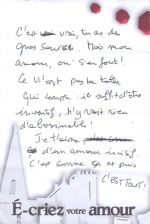 C'est vrai, tu as de
gros sourcils Mais mon
amour, on s'en fout!
Ce n'est pas la taille
qui compte. il suffit d'être
inventif, il n'y avait rien
d'abominable!
Je t'aime
d'un amour inouï.
C'est comme ça et puis
C'EST TOUT!
É-criez votre amour